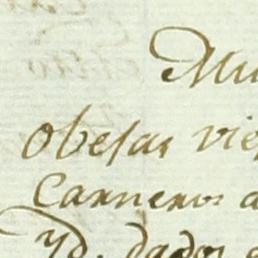 Mu
Obejas vie
Carneros a
Yd. dados